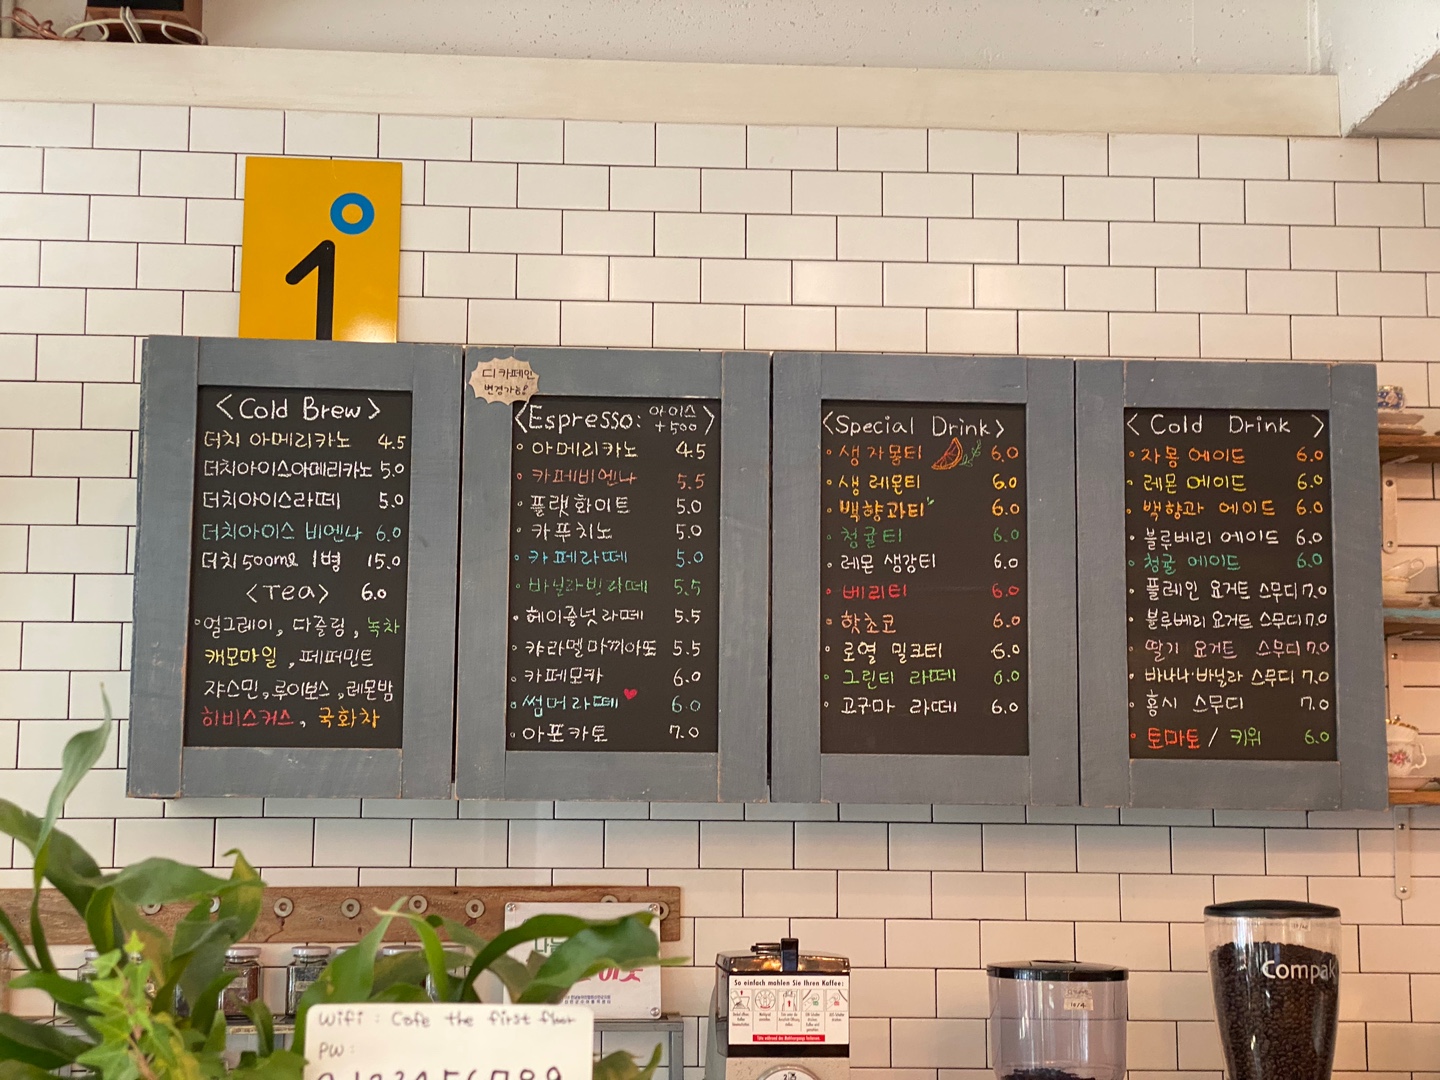 1°
<Cold Brew>
더치 아메리카노 4.5
더치아이스아메리카노 5.0
더치아이스라떼 5.0
더치아이스 비엔나 6.0
더치500ml 1병 15.0
<Tea> 6.0
얼그레이, 다즐링, 녹차
캐모마일, 페퍼민트
쟈스민, 루이보스, 레몬밤
히비스커스, 국화차
디카페인
변경가능!
<Espresso: 아이스 +500>
아메리카노 4.5
카페비엔나 5.5
플랫화이트 5.0
카푸치노 5.0
카페라떼 5.0
바닐라빈라떼 5.5
헤이즐넛라떼 5.5
캬라멜마끼아또 5.5
카페모카 6.0
썸머라떼 6.0
아포카토 7.0
<Special Drink>
생자몽티 6.0
생레몬티 6.0
백향과티 6.0
청귤티 6.0
레몬 생강티 6.0
베리티 6.0
핫초코 6.0
로열 밀크티 6.0
그린티 라떼 6.0
고구마 라떼 6.0
<Cold Drink>
자몽에이드 6.0
레몬에이드 6.0
백향과 에이드 6.0
블루베리 에이드 6.0
청귤 에이드 6.0
플레인 요거트 스무디 7.0
블루베리 요거트 스무디 7.0
딸기 요거트 스무디 7.0
바나나·바닐라 스무디 7.0
홍시 스무디 7.0
토마토 / 키위 6.0
Compak
So einfach mahlen Sie Ihren Kaffee:
Wifi : Cafe the first floor
PW :
0123456789